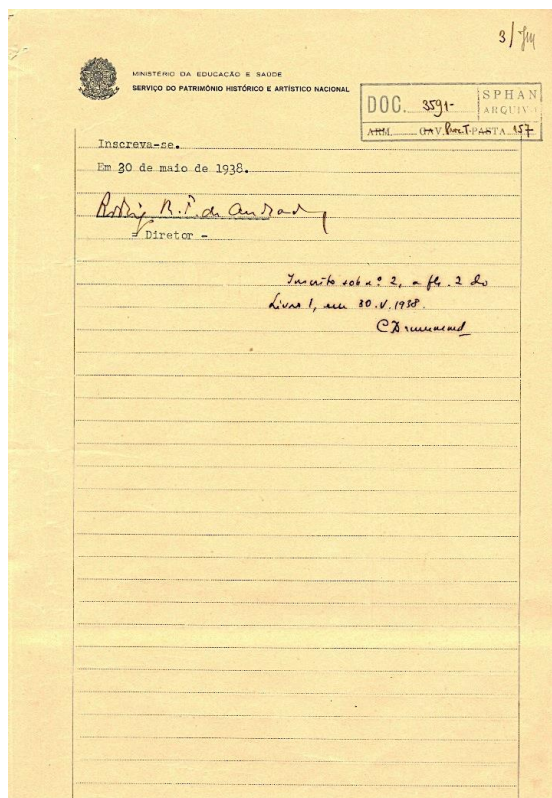 3/
MINISTÉRIO DA EDUCAÇÃO E SAÚDE
SERVIÇO DO PATRIMÔNIO HISTÓRICO E ARTÍSTICO NACIONAL
DOC. 3591-
SPHAN
ARQUIVO
ARM. GAV. Proc. T. PASTA 157
Inscreva-se.
Em 30 de maio de 1938.
Rodrigo M. F. de Andrade
- Diretor -
Inscrito sob nº 2, a fls. 2 do
Livro 1, em 30.V.1938.
C Drummond